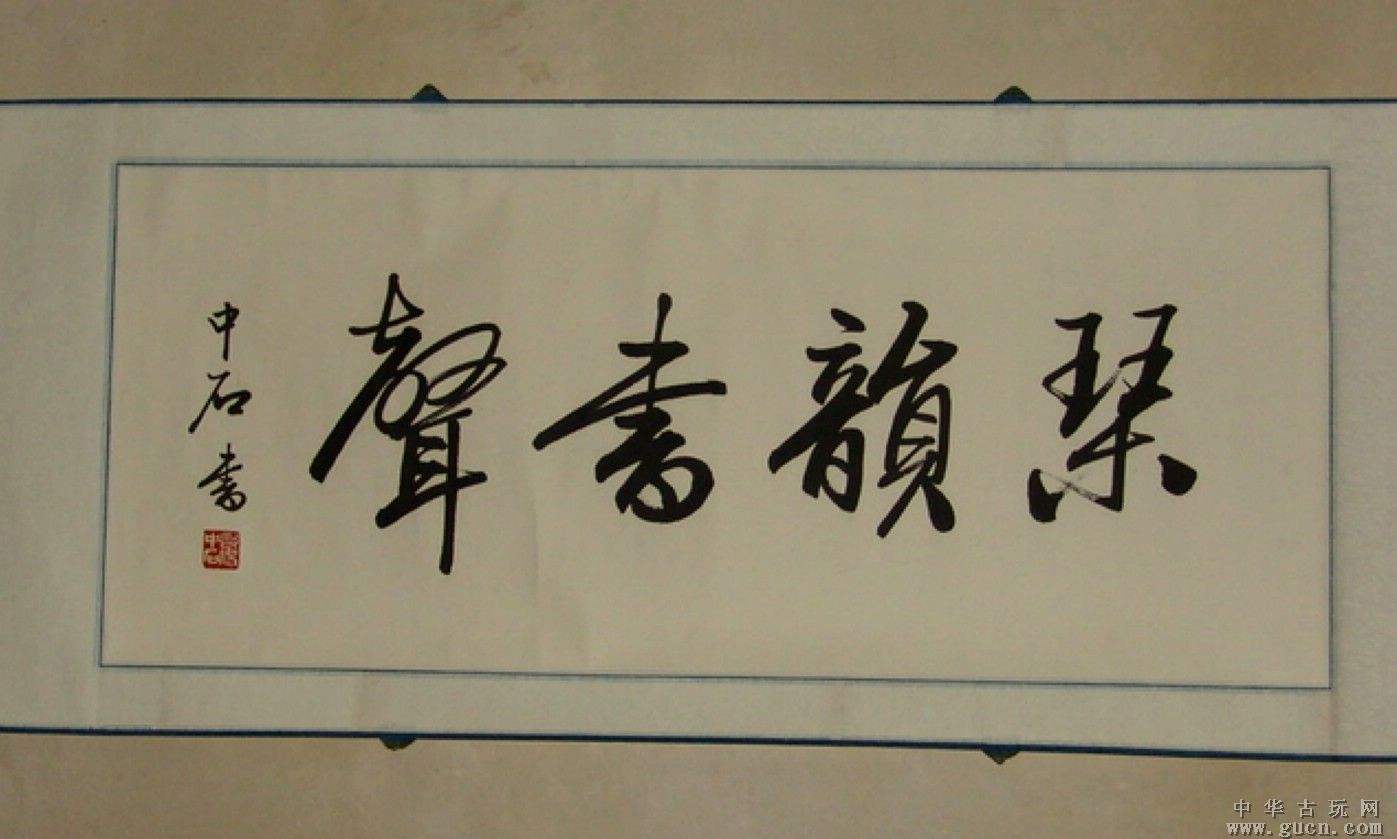 琹韻書聲
中石書
中石
中华古玩网
www.gucn.com